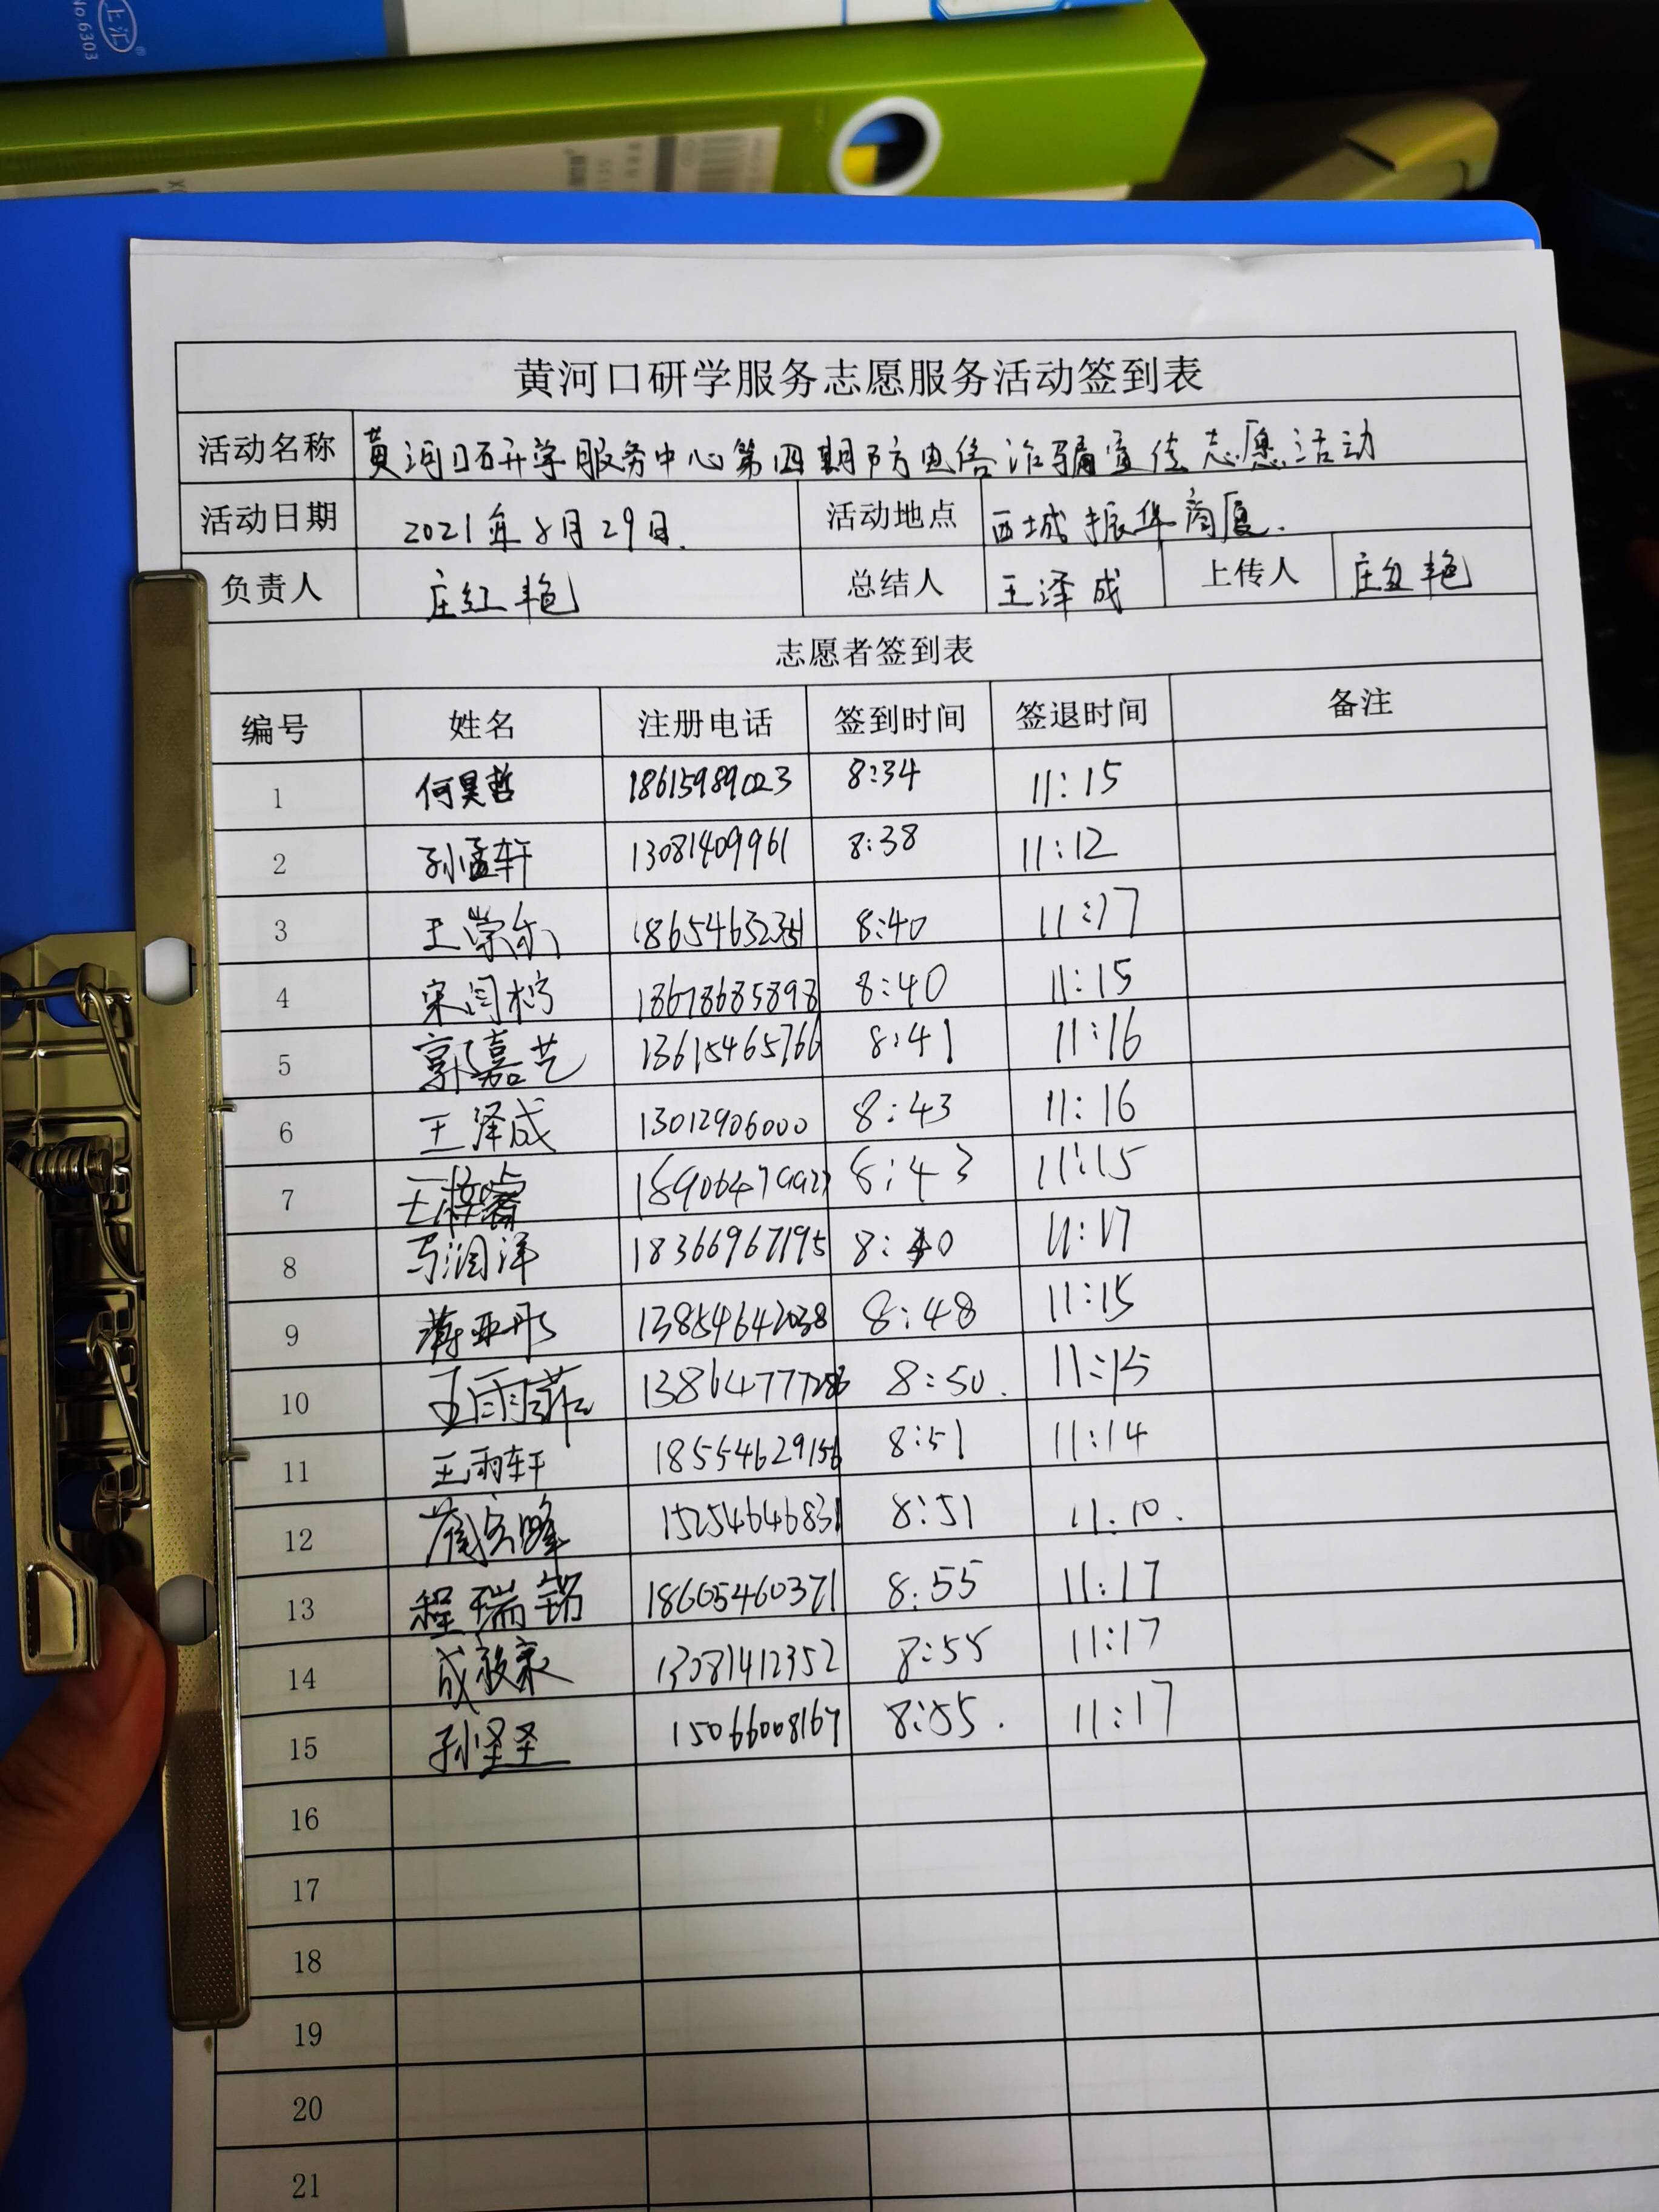 上汇
No.6303
黄河口研学服务志愿服务活动签到表
活动名称 黄河口研学服务中心第四期防电信诈骗宣传志愿活动
活动日期 2021年8月29日. 活动地点 西城振华商厦.
负责人 庄红艳 总结人 王泽成 上传人 庄红艳
志愿者签到表
编号 姓名 注册电话 签到时间 签退时间 备注
1 何昊哲 18615989023 8:34 11:15
2 孙孟轩 13081409961 8:38 11:12
3 王 8:40 11:17
4 宋闫 18678685898 8:40 11:15
5 郭嘉艺 13615465766 8:41 11:16
6 王泽成 13012906000 8:43 11:16
7 王梓睿 8:43 11:15
8 马润洋 18366967195 8:40 11:17
9 蒋亚彤 13854642038 8:48 11:15
10 王雨菲 8:50. 11:15
11 王雨轩 18554629156 8:51 11:14
12 15254646831 8:51 11:10.
13 程瑞铭 18605460371 8:55 11:17
14 成毅家 13081412352 8:55 11:17
15 孙圣圣 15066008167 8:55. 11:17
16
17
18
19
20
21